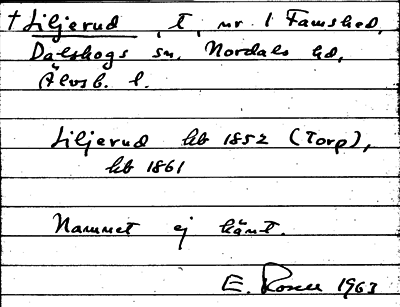 † Liljerud, t, nr 1 Famshed,
Dalskogs sn, Nordals hd,
Älvsb. l.
Liljerud hb 1852 (Torp),
hb 1861
Namnet ej känt.
E. 1963